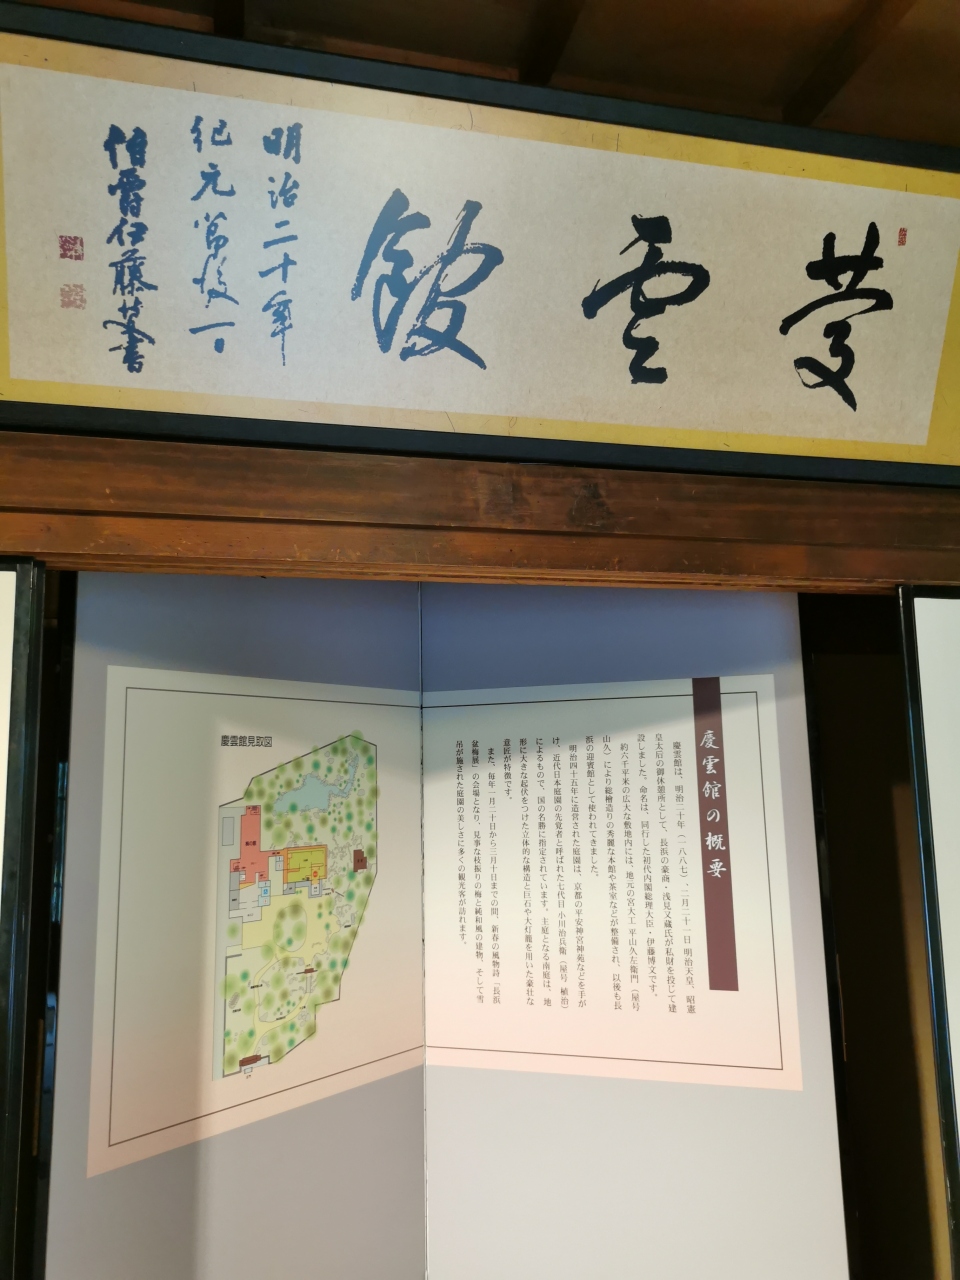 慶雲館
明治二十年
紀元節後一日
伯爵伊藤博文書
慶雲館の概要
慶雲館は、明治二十年（一八八七）、二月二十一日 明治天皇、昭憲
皇太后の御休憩所として、長浜の豪商・浅見又蔵氏が私財を投じて建
設しました。命名は、同行した初代内閣総理大臣・伊藤博文です。
約六千平米の広大な敷地内には、地元の宮大工 平山久左衛門（屋号
山久）により総檜造りの秀麗な本館や茶室などが整備され、以後も長
浜の迎賓館として使われてきました。
明治四十五年に造営された庭園は、京都の平安神宮神苑などを手が
け、近代日本庭園の先覚者と呼ばれた七代目 小川治兵衛（屋号 植治）
によるもので、国の名勝に指定されています。主庭となる南庭は、地
形に大きな起伏をつけた立体的な構造と巨石や大灯籠を用いた豪壮な
意匠が特徴です。
また、毎年一月二十日から三月十日までの間、新春の風物詩「長浜
盆梅展」の会場となり、見事な枝振りの梅と純和風の建物、そして雪
吊が施された庭園の美しさに多くの観光客が訪れます。
慶雲館見取図